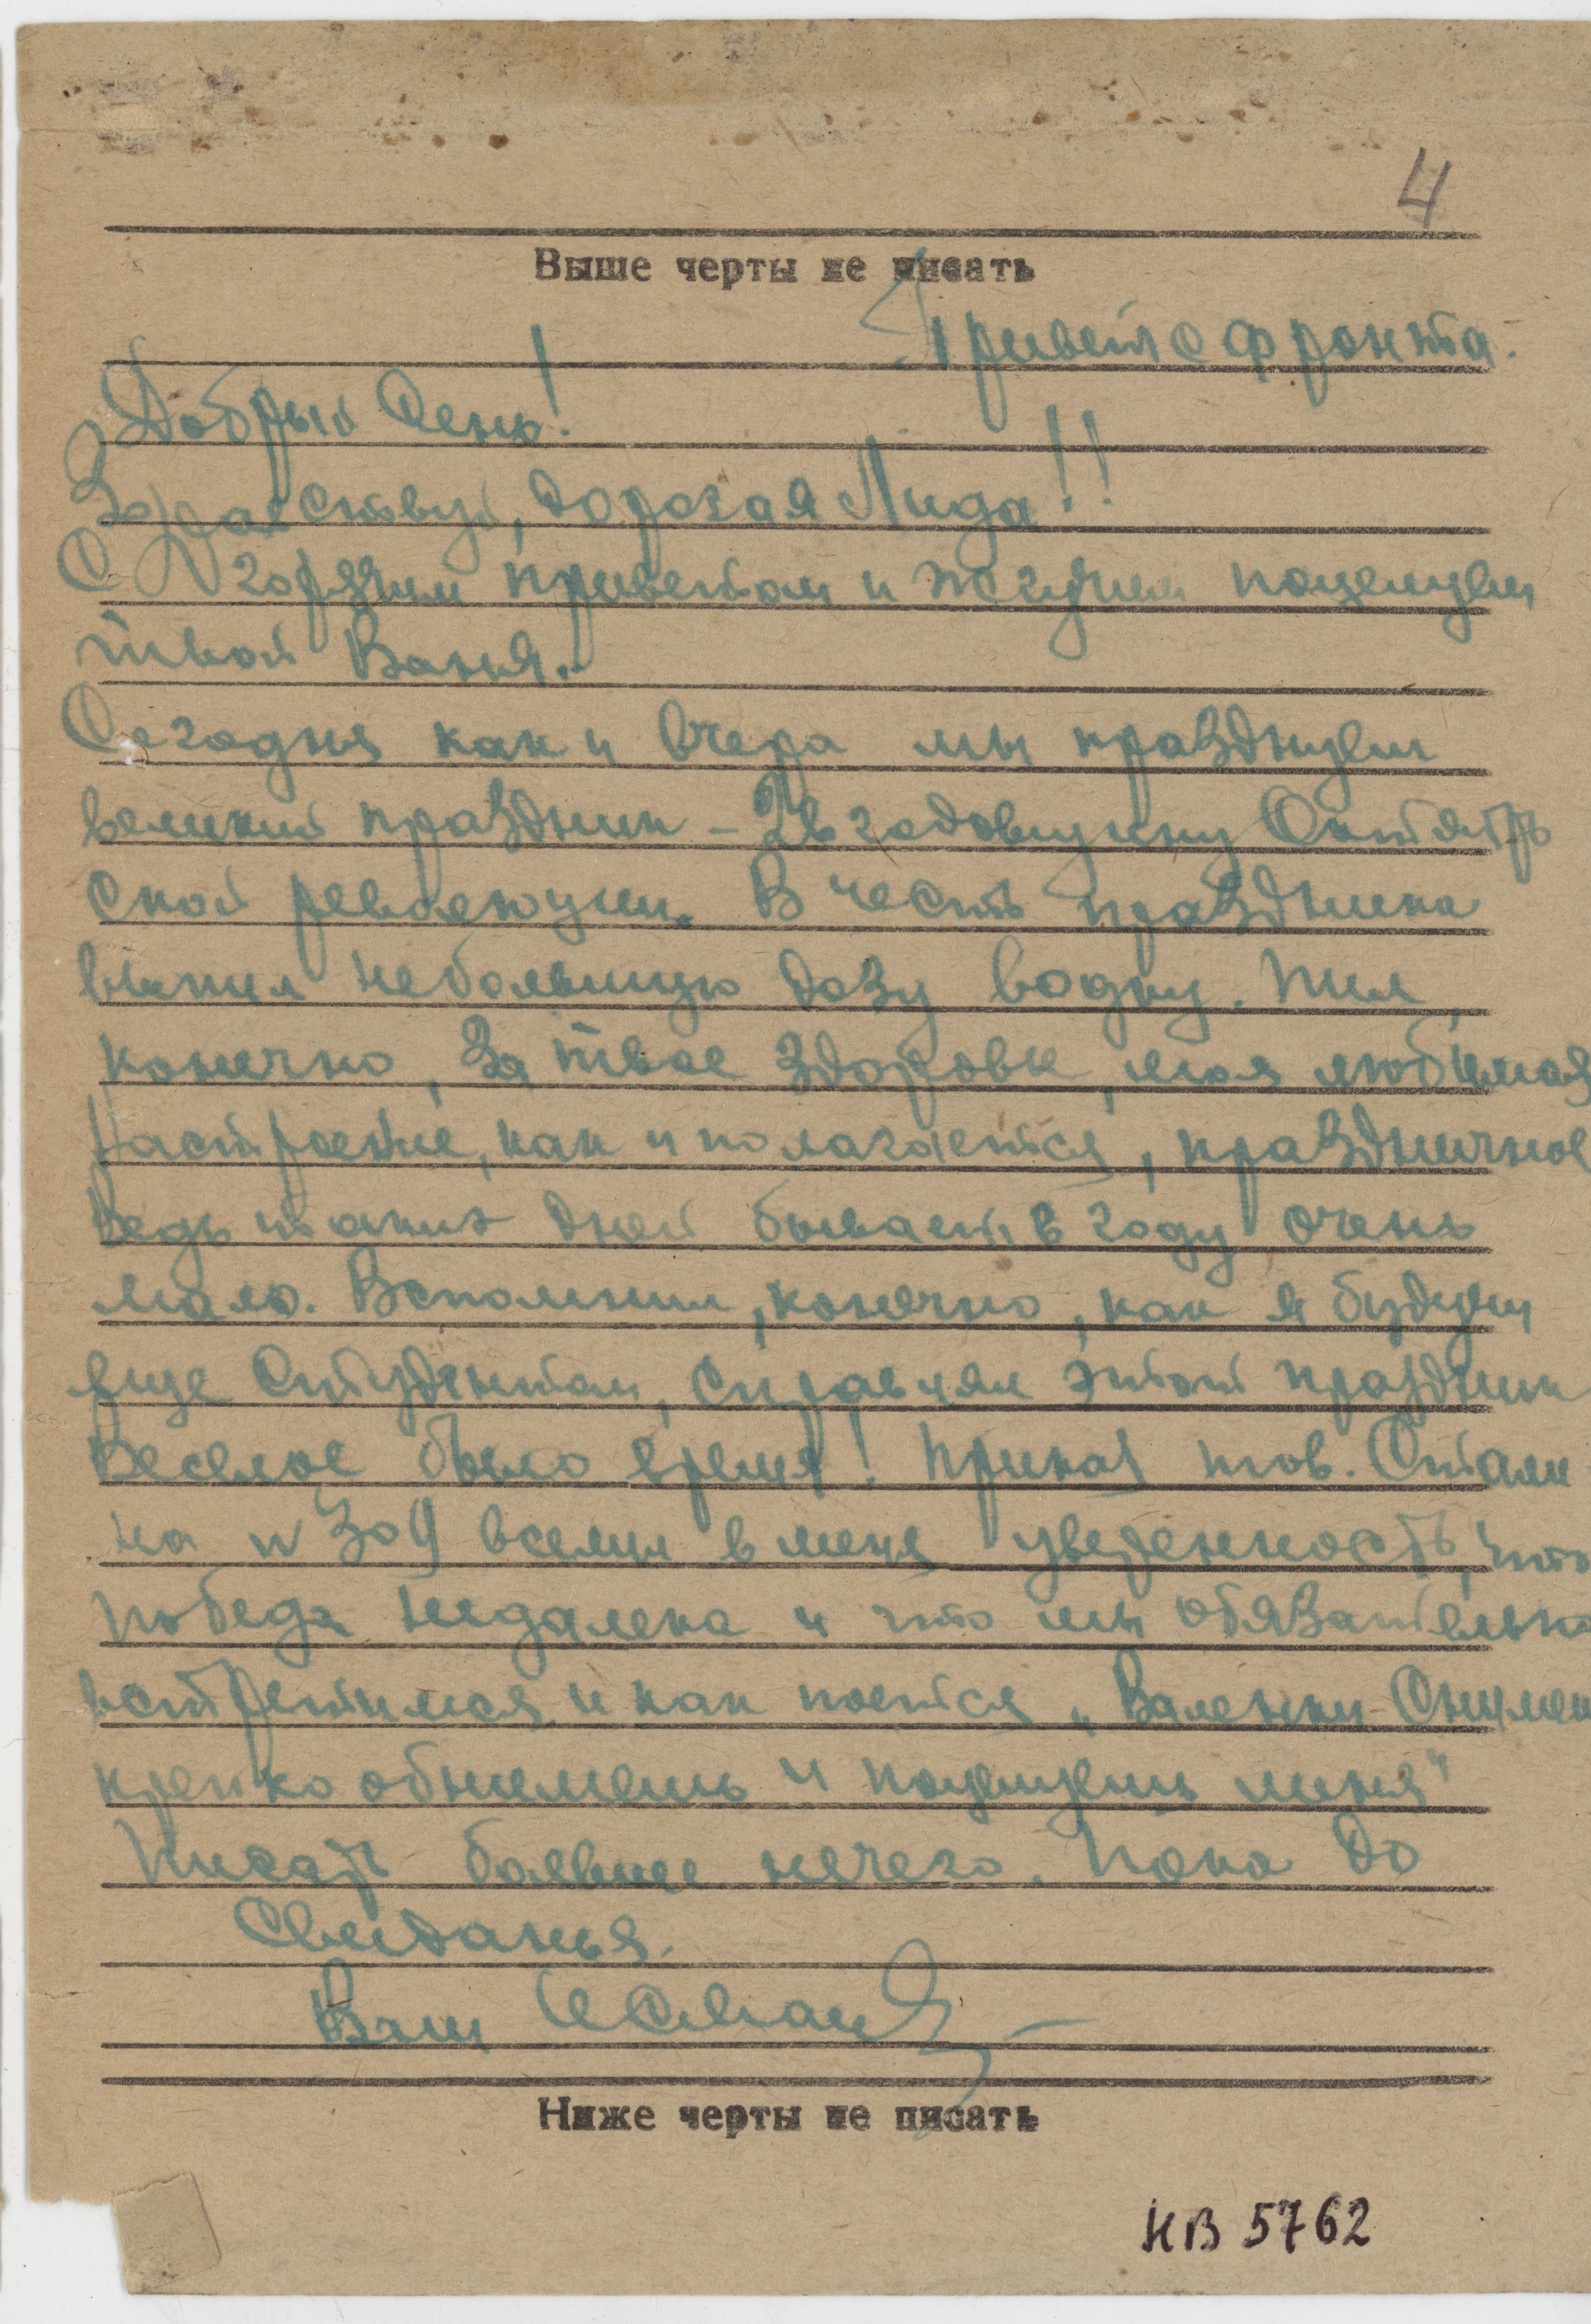 4
Выше черты не писать
Привет с фронта.
Добрый день!
Здравствуй, дорогая Лида!!
С горячим приветом и жгучим поцелуем
твой Ваня.
Сегодня как и вчера мы празднуем
великий праздник – 26 годовщину Октябрь
ской революции. В честь праздника
выпил небольшую дозу водку. Пил,
конечно, за твое здоровье, моя любимая
Настроение, как и полагается, праздничное
Ведь таких дней бывает в году очень
мало. Вспомнил, конечно, как я будучи
еще студентом, справлял этот праздник
Веселое было время! Приказ тов. Стали-
на N 309 вселил в меня уверенность, что
победа недалека и что мы обязательно
встретимся и как поется „Валенки
крепко обнимешь и поцелуешь меня"
Писать больше нечего. Пока до
Свиданья.
Ваш
Ниже черты не писать
КВ 5762